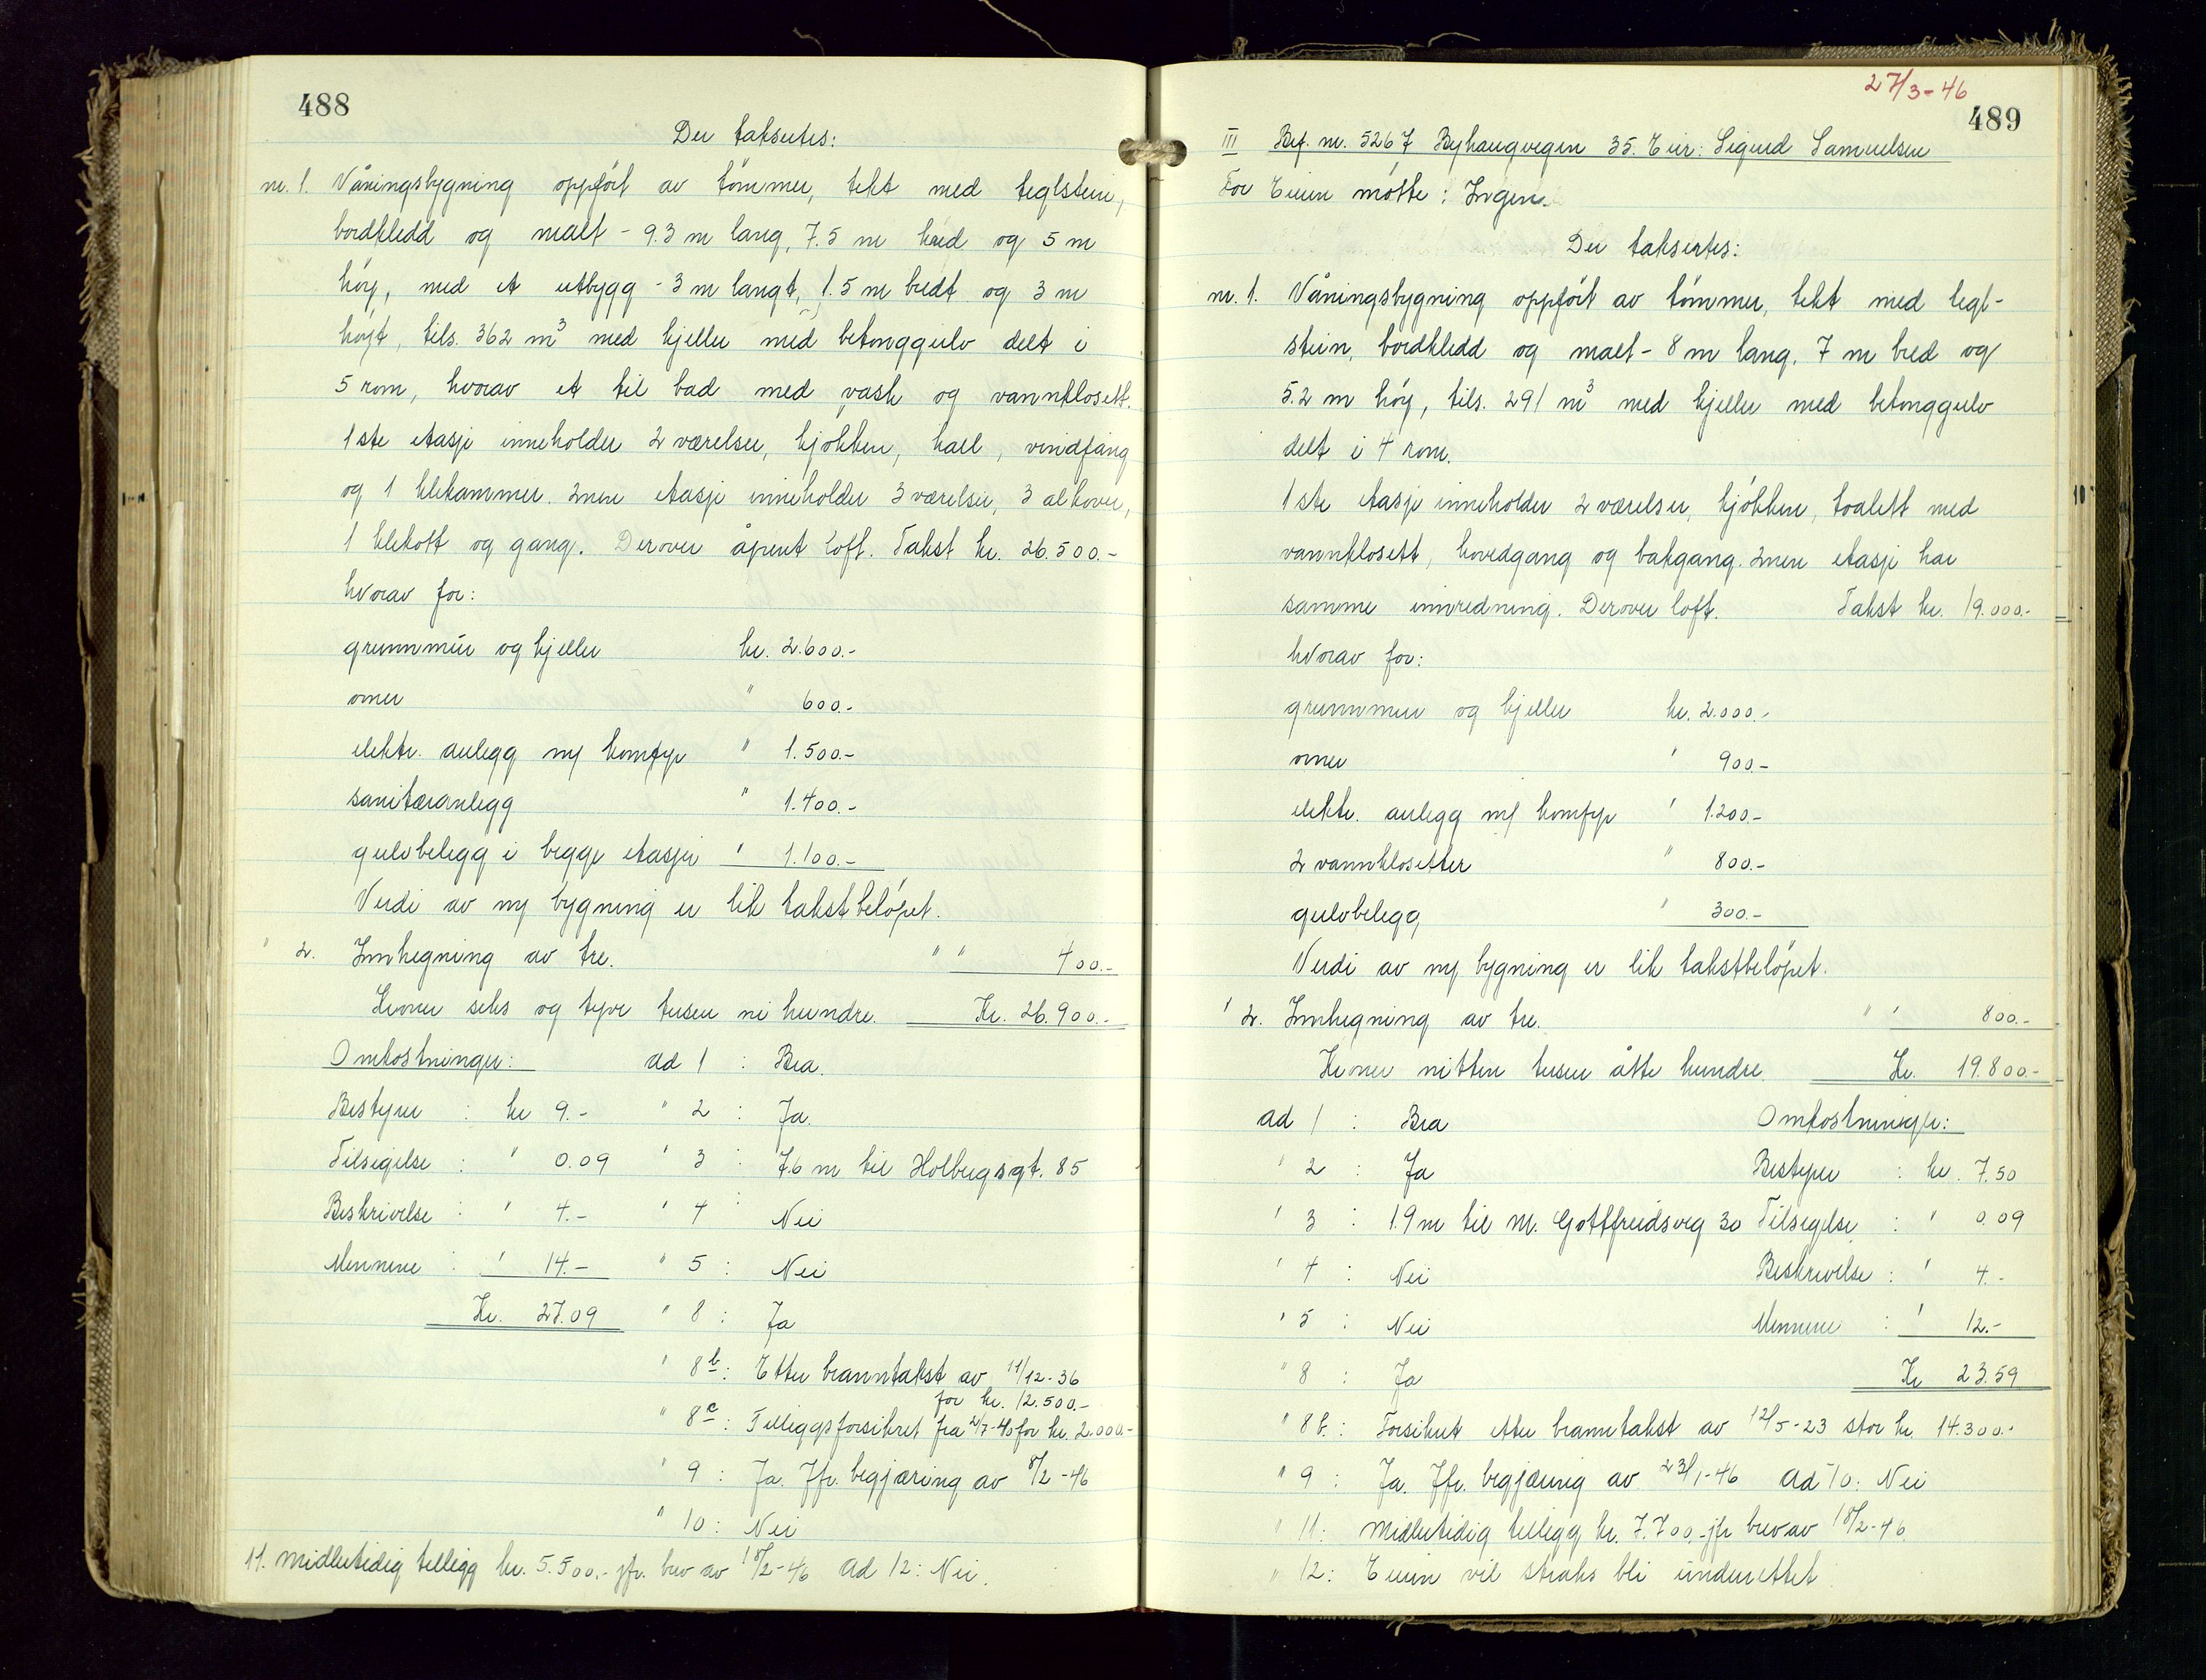 488
Der taksertes:
nr. 1. Våningsbygning oppfört av tömmer, tekt med teglstein,
bordkledd og malt - 9.3 m lang, 7.5 m bred og 5 m
höy, med et utbygg - 3 m langt, 1.5 m bredt og 3 m
höyt, tils. 362 m³ med kjeller med betonggulv delt i
5 rom, hvorav et til bad med vask og vannklosett.
1ste etasje inneholder 2 værelser, kjökken, hall, vindfang
og 1 klekammer. 2nen etasje inneholder 3 værelser, 3 alkover,
1 klekott og gang. Derover åpent loft. Takst kr. 26.500.-
hvorav for:
grunnmur og kjeller kr. 2.600.-
ovner " 600.-
elektr. anlegg m/ komfyr " 1.500.-
sanitæranlegg " 1.400.-
gulvbelegg i begge etasjer " 1.100.-
Verdi av ny bygning er lik takstbelöpet.
" 2. Innhegning av tre. " " 400.-
Kroner seks og tyve tusen ni hundre. Kr. 26.900.-
Omkostninger: ad 1 : Bra.
Bestyrer : kr 9.- " 2 : Ja.
Tilsigelse : " 0.09 " 3 : 7.6 m til Holbergsgt. 85
Beskrivelse : " 4.- " 4 : Nei
Mennene : " 14.- " 5 : Nei
Kr. 27.09 " 8 : Ja
" 8b: Etter branntakst av 11/12-36
for kr. 12.500.-
" 8c: Tilleggsforsikret fra 2/7-40 for kr. 2.000.-
" 9 : Ja. Jfr. begjæring av 8/2-46
" 10: Nei
11. Midlertidig tillegg kr. 5.500.- jfr. brev av 18/2-46 ad 12: Nei.
27/3-46
489
III Bef. nr. 5267 Byhaugvegen 35. Eier: Sigurd Samuelsen
For Eieren mötte: Ingen.
Der taksertes:
nr. 1. Våningsbygning oppfört av tömmer, tekt med tegl-
stein, bordkledd og malt - 8 m lang, 7 m bred og
5.2 m höy, tils. 291 m³ med kjeller med betonggulv
delt i 4 rom.
1ste etasje inneholder 2 værelser, kjökken, toalett med
vannklosett, hovedgang og bakgang. 2nen etasje har
samme innredning. Derover loft. Takst kr. 19.000.-
hvorav for:
grunnmur og kjeller kr. 2.000.-
ovner " 900.-
elektr. anlegg m/ komfyr " 1.200.-
2 vannklosetter " 800.-
gulvbelegg " 300.-
Verdi av ny bygning er lik takstbelöpet.
" 2. Innhegning av tre. " " 800.-
Kroner nitten tusen åtte hundre. Kr. 19.800.-
ad 1 : Bra Omkostninger:
" 2 : Ja Bestyrer : kr. 7.50
" 3 : 1.9 m til M. Gottfredsveg 30 Tilsigelse : " 0.09
" 4 : Nei Beskrivelse : " 4.-
" 5 : Nei Mennene : " 12.-
" 8 : Ja Kr 23.59
" 8b.: Forsikret etter branntakst av 12/5-23 stor kr. 14.300.-
" 9 : Ja. Jfr. begjæring av 23/1-46 ad 10: Nei
" 11: Midlertidig tillegg kr. 7.700.- jfr brev av 18/2-46.
" 12: Eieren vil straks bli underrettet